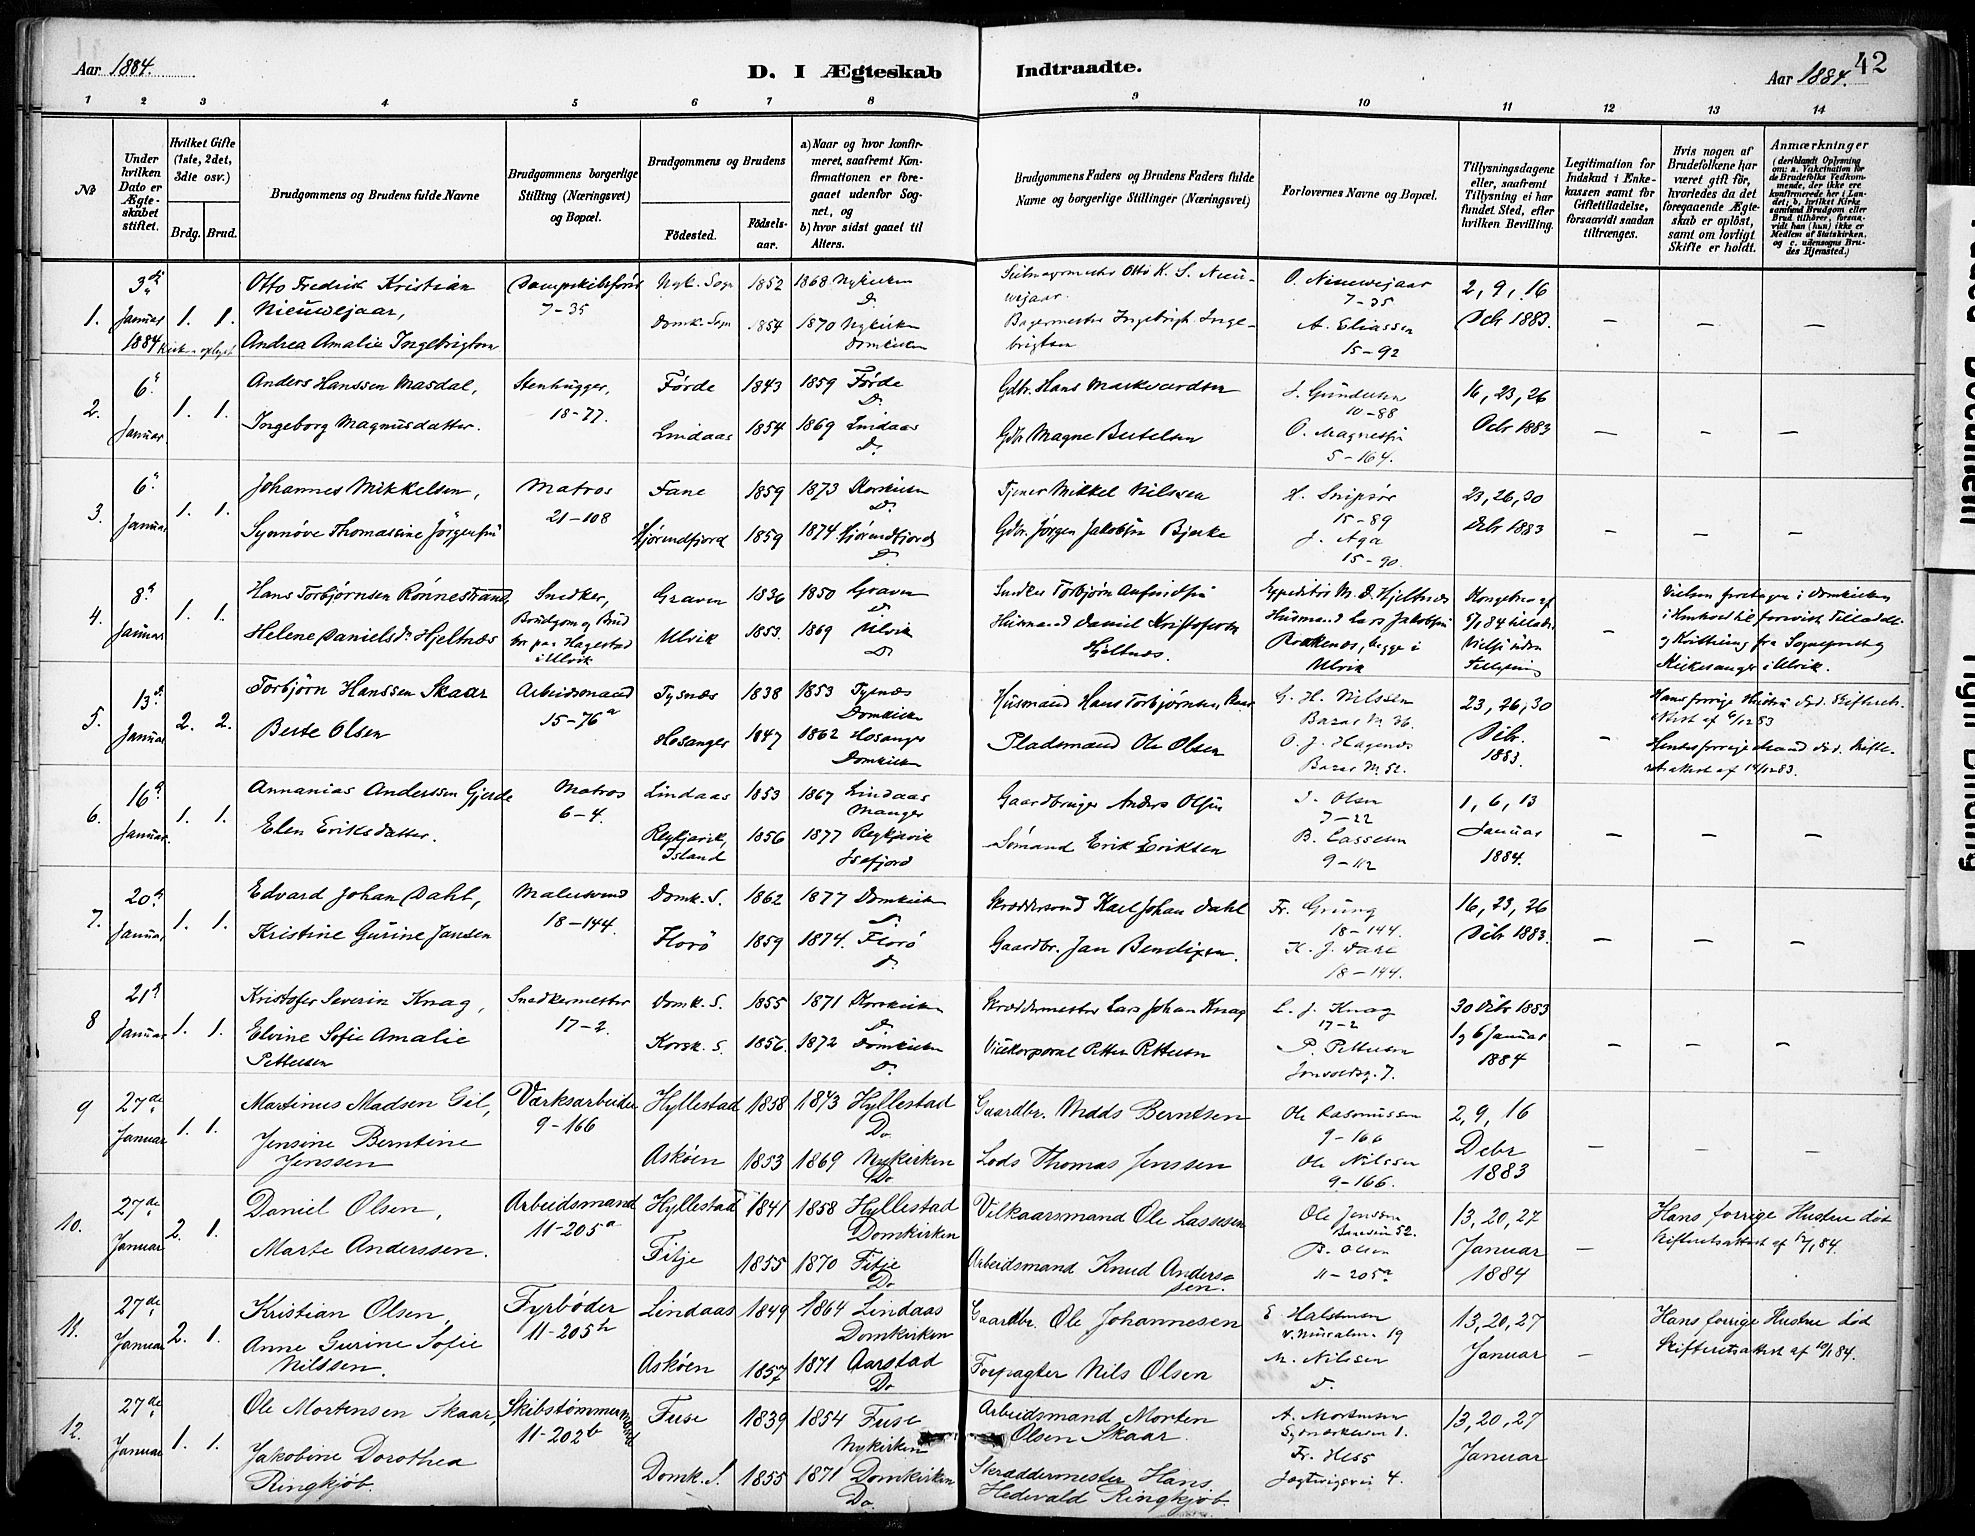 Aar 1884.
D. I Ægteskab
Indtraadte.
Aar 1884.
42
1 2 3 4 5 6 7 8 9 10 11 12 13 14
No
Under hvilken Dato er Ægteskabet stiftet.
Hvilket Gifte (1ste, 2det, 3die osv.)
Brdg. Brud.
Brudgommens og Brudens fulde Navne
Brudgommens borgerlige Stilling (Næringsvei) og Bopæl.
Brudgommens og Brudens
Födested.
Födselsaar.
a) Naar og hvor konfirmeret, saafremt Konfirmationen er foregaaet udenfor Sognet, og
b) hvor sidst gaaet til Alters.
Brudgommens Faders og Brudens Faders fulde Navne og borgerlige Stillinger (Næringsvei)
Forlovernes Navne og Bopæl.
Tillysningsdagene eller, saafremt Tillysning ei har fundet Sted, efter hvilken Bevilling.
Legitimation for Indskud i Enkekassen samt for Giftetilladelse, forsaavidt saadan tiltrænges.
Hvis nogen af Brudefolkene har været gift för, hvorledes da det foregaaende Ægteskab er oplöst, samt om lovligt Skifte er holdt.
Anmærkninger
(deriblandt Oplysning om: a. Vakcination for de Brudefolks Vedkommende, der ikke ere konfirmerede her i Landet; b. hvilket Kirkesamfund Brudgom eller Brud tilhører, forsaavidt han (hun) ikke er Medlem af Statskirken, og c. udensogns Brudes Hjemsted.)
1. 3die Januar 1884 1. 1.
Otto Fredrik Kristian Nieuwejaar,
Dampskibsfører 7-35 Nyk. Sogn 1852 1868 Nykirken D.
Andrea Amalie Ingebrigtsen
Domk. Sogn 1854 1870 Nykirken Domkirken
Otto K. S. Nieuwejaar.
Bagermester Ingebrigt Ingebrigtsen
O. Nieuwejaar 7-35
A. Eliassen 15-92
2, 9, 16 Dcbr 1883.
2. 6 Januar 1. 1.
Anders Hanssen Masdal, Stenhugger, 18-77. Førde 1843 1859 Førde D.
Ingeborg Magnusdatter. Lindaas 1854 1869 Lindaas D.
Gdbr. Hans Markvardsen
Gdbr Magne Bertelsen
J. Gundersen 10-88
O. Magnesen 5-164.
16, 23, 26 Dcbr 1883
3. 6 Januar 1. 1.
Johannes Mikkelsen, Matros 21-108 Fane 1859 1873 Korskirken D.
Synnøve Thomassine Jörgensen Hjørundfjord 1859 1874 Hjørundfjord D.
Tjener Mikkel Nilssen
Gdbr. Jørgen Jakobsen Bjerke
15-89
J. Aga 15-90.
23, 26, 30 Debr 1883
4. 8 Januar 1. 1.
Hans Torbjørnsen Rønnestrand, Snedker, Brudgom og Brud bor paa Hagestad i Ulvik
Graven 1836 1850 Graven D.
Helene Danielsdr. Hjeltnæs Ulvik 1853. 1869 Ulvik D.
Snedker Torbjørn Aufindsen
Husmand Daniel Kristofersen Hjeltnæs.
Expeditør M. D. Hjeltnæs
Husmand Lars Jakobsen Rokkenæs, begge i Ulvik
Vielsen foretagen i Domkirken
i Ulvik.
5. 13 Januar 2. 2.
Torbjörn Hanssen Skaar Arbeidsmand 15-76a Tysnæs 1838 1853 Tysnæs Domkirken
Berte Olsen Hosanger 1847 1862 Hosanger Domkirken
Husmand Hans Torbjørnsen Skaar
Pladsmand Ole Olsen
G. H. Nilssen Bazar No 36.
O. J. Hagenæs Bazar No 52.
23, 26, 30 Debr. 1883.
Hans forrige Hustru død. Skifteretsattest af 6/12 83
Hendes forrige Mand død. Skifteretsattest af 14/12 83.
6. 16 Januar. 1. 1.
Annanias Anderssen Gjerde Matros 6-4. Lindaas 1853 1867 Lindaas Manger
Elen Eriksdatter. Reykjavik, Island 1856 1877 Reykjavik Isafjord
Gaardbruger Anders Olsen
Sømand Erik Eriksen
J. Olsen 7-22
B. Lassesen 9-112
1, 6, 13 Januar 1884.
7. 20 Januar 1. 1.
Edvard Johan Dahl, Malersvend 18-144. Domk. S. 1862 1877 Domkirken D.
Kristine Gurine Jansen Florö 1859 1874. Florö D.
Skræddersvend Karl Johan Dahl
Gaardbr. Jan Bendixen.
Fr. Grung 18-144.
K. J. Dahl 18-144.
16, 23, 26 Debr 1883.
8 21 Januar 1. 1.
Kristofer Severin Knag, Snedkermester 17-2. Domk. S. 1855 1871 Korskirken D.
Elvine Sofie Amalie Pettersen Korsk. S. 1856. 1872 Domkirken D.
Skreddermester Lars Johan Knag
Vicekorporal Petter Pettersen
L. J. Knag 17-2
P. Pettersen Jonsvoldsg. 7.
30 Debr 1883 1 og 6 Januar 1884
9 27de Januar 1. 1.
Martinus Madsen Gil, Værksarbeider 9-166 Hyllestad 1858 1873 Hyllestad Do
Jensine Berntine Jenssen Askøen 1853 1869 Nykirken Do
Gaardbr. Mads Berntsen
Lods Thomas Jenssen
Ole Rasmussen 9-166
Ole Nilssen 9-166.
2, 9, 16 Debr 1883
10. 27de Januar 2. 1.
Daniel Olsen, Arbeidsmand 11-205a Hyllestad 1841 1858 Hyllestad Domkirken
Marte Anderssen. Fitje 1855 1870 Fitje Do
Vilkaarsmand Ole Lassesen
Arbeidsmand Knud Anderssen.
Ole Jenssen 52.
B. Olsen 11-205a
13, 20, 27 Januar 1884
Hans forrige Hustru død
Skifteretsattest af 12/1 84.
11. 27de Januar 2. 1.
Kristian Olsen, Fyrbøder 11-205b Lindaas 1849 1864 Lindaas Domkirken
Anne Gurine Sofie Nilssen. Askøen 1857 1871 Aarstad Do
Gaardbr. Ole Johannesen
Forpagter Nils Olsen
E Halstensen 19
M. Nilssen D.
13, 20, 27 Januar
Hans forrige Hustru død
Skifteretsattest af 10/1 84.
12. 27de Januar 1. 1.
Ole Mortensen Skaar, Skibstømmermand 11-202b Fuse 1839 1854 Fuse Nykirken
Jakobine Dorothea Ringkjøb. Domk. S. 1855 1871 Domkirken Do.
Arbeidsmand Morten Olsen Skaar.
Skræddermester Hans Hedevald Ringkjøb.
A. Mortensen 1.
Fr. Hess Jægtvigsvei 4.
13, 20, 27 Januar